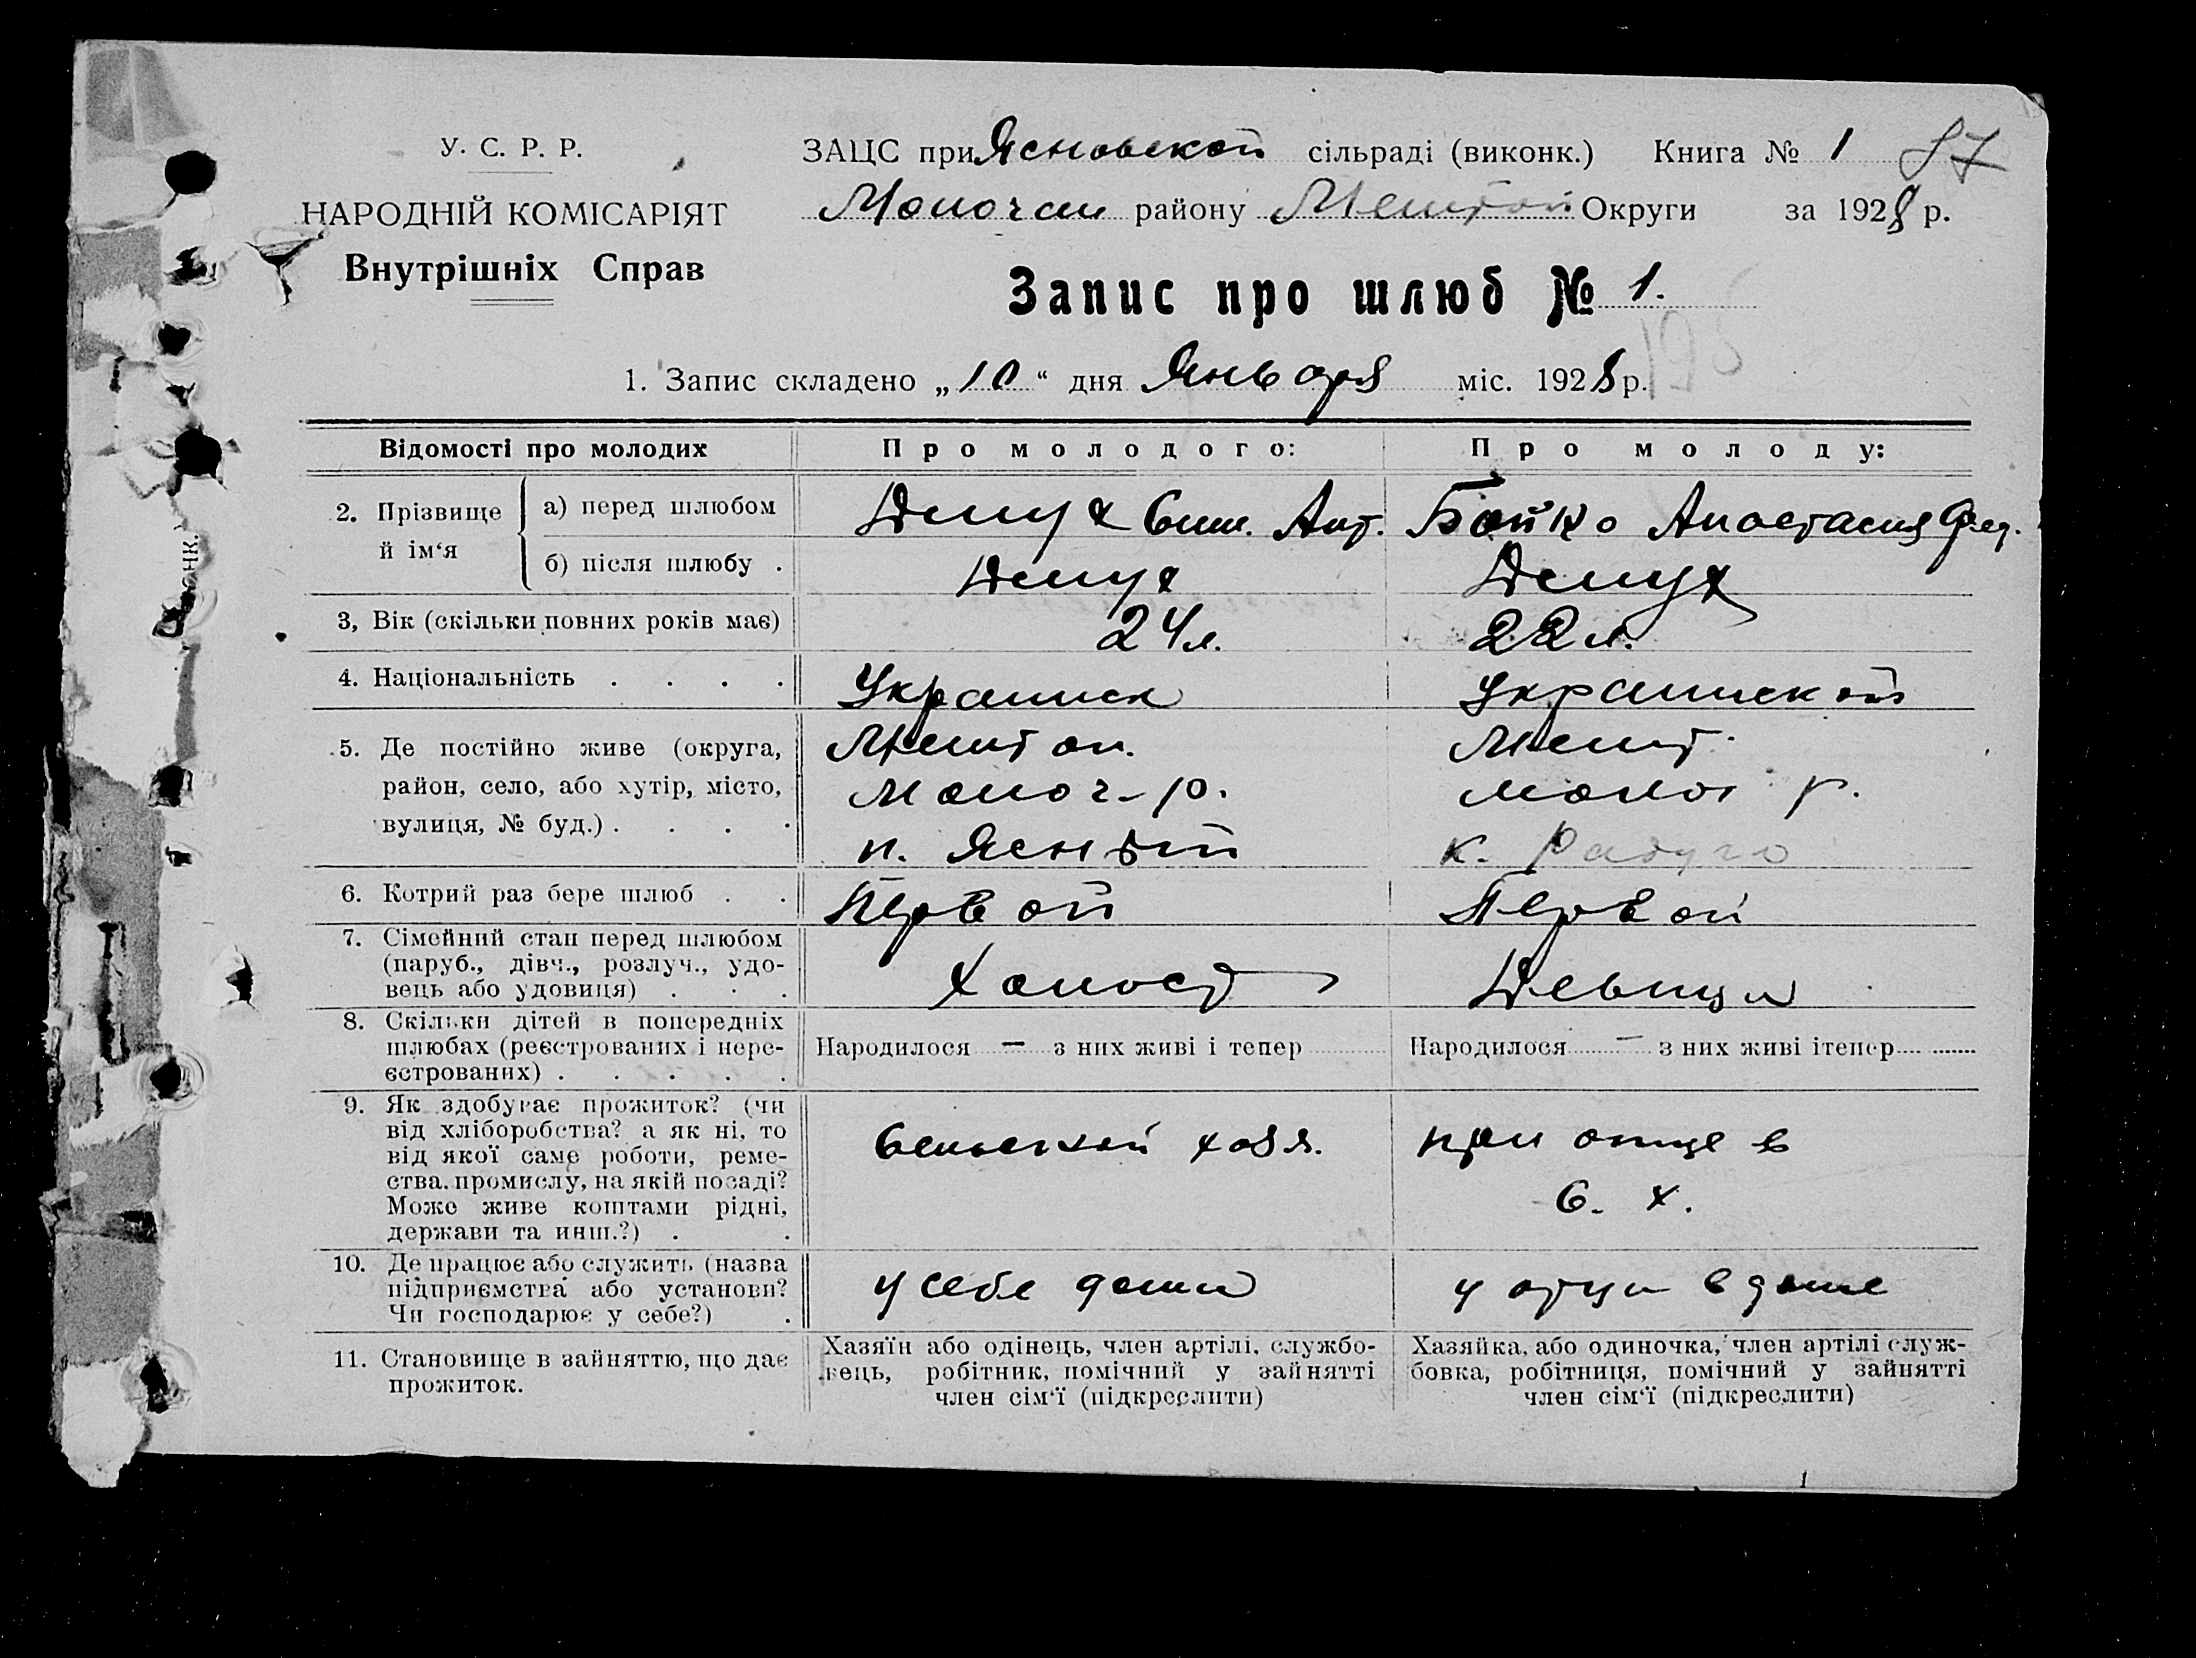 У. С. Р. Р.
НАРОДНІЙ КОМІСАРІЯТ
Внутрішніх Справ
ЗАЦС при Ясновской сільраді (виконк.) Книга № 1 87
Молочан району Округи за 1928 р.
Запис про шлюб № 1.
1. Запис складено „10“ дня Января міс. 1928 р.
Відомості про молодих
Про молодого:
Про молоду:
2. Прізвище й ім‘я
а) перед шлюбом
Демух Ант.
Бойко Анастасия Фед.
б) після шлюбу .
Демух
Демух
3, Вік (скільки повних років має)
24 л.
22 л.
4. Національність . . . .
Украинск
Украинской
5. Де постійно живе (округа,
район, село, або хутір, місто,
вулиця, № буд.) . . . .
Молоч. р.
п. Ясный
Молоч р.
к. Радуго
6. Котрий раз бере шлюб . .
Первой
Первой
7. Сімейний стан перед шлюбом
(паруб., дівч., розлуч., удо-
вець або удовиця) . . .
Холост
Девица
8. Скільки дітей в попередніх
шлюбах (реєстрованих і нере-
єстрованих) . . . . .
Народилося — з них живі і тепер
Народилося — з них живі ітепер
9. Як здобуває прожиток? (чи
від хліборобства? а як ні, то
від якої саме роботи, реме-
ства, промислу, на якій посаді?
Може живе коштами рідні,
держави та инш.?) . .
сельский хозя.
при отце в
с. х.
10. Де працює або служить (назва
підприємства або установи?
Чи господарює у себе?) .
у себе дома
у отца в доме
11. Становище в зайняттю, що дає
прожиток.
Хазяїн або одінець, член артілі, службо-
вець, робітник, помічний у зайнятті
член сім‘ї (підкреслити)
Хазяйка, або одиночка, член артілі служ-
бовка, робітниця, помічний у зайнятті
член сім‘ї (підкреслити)